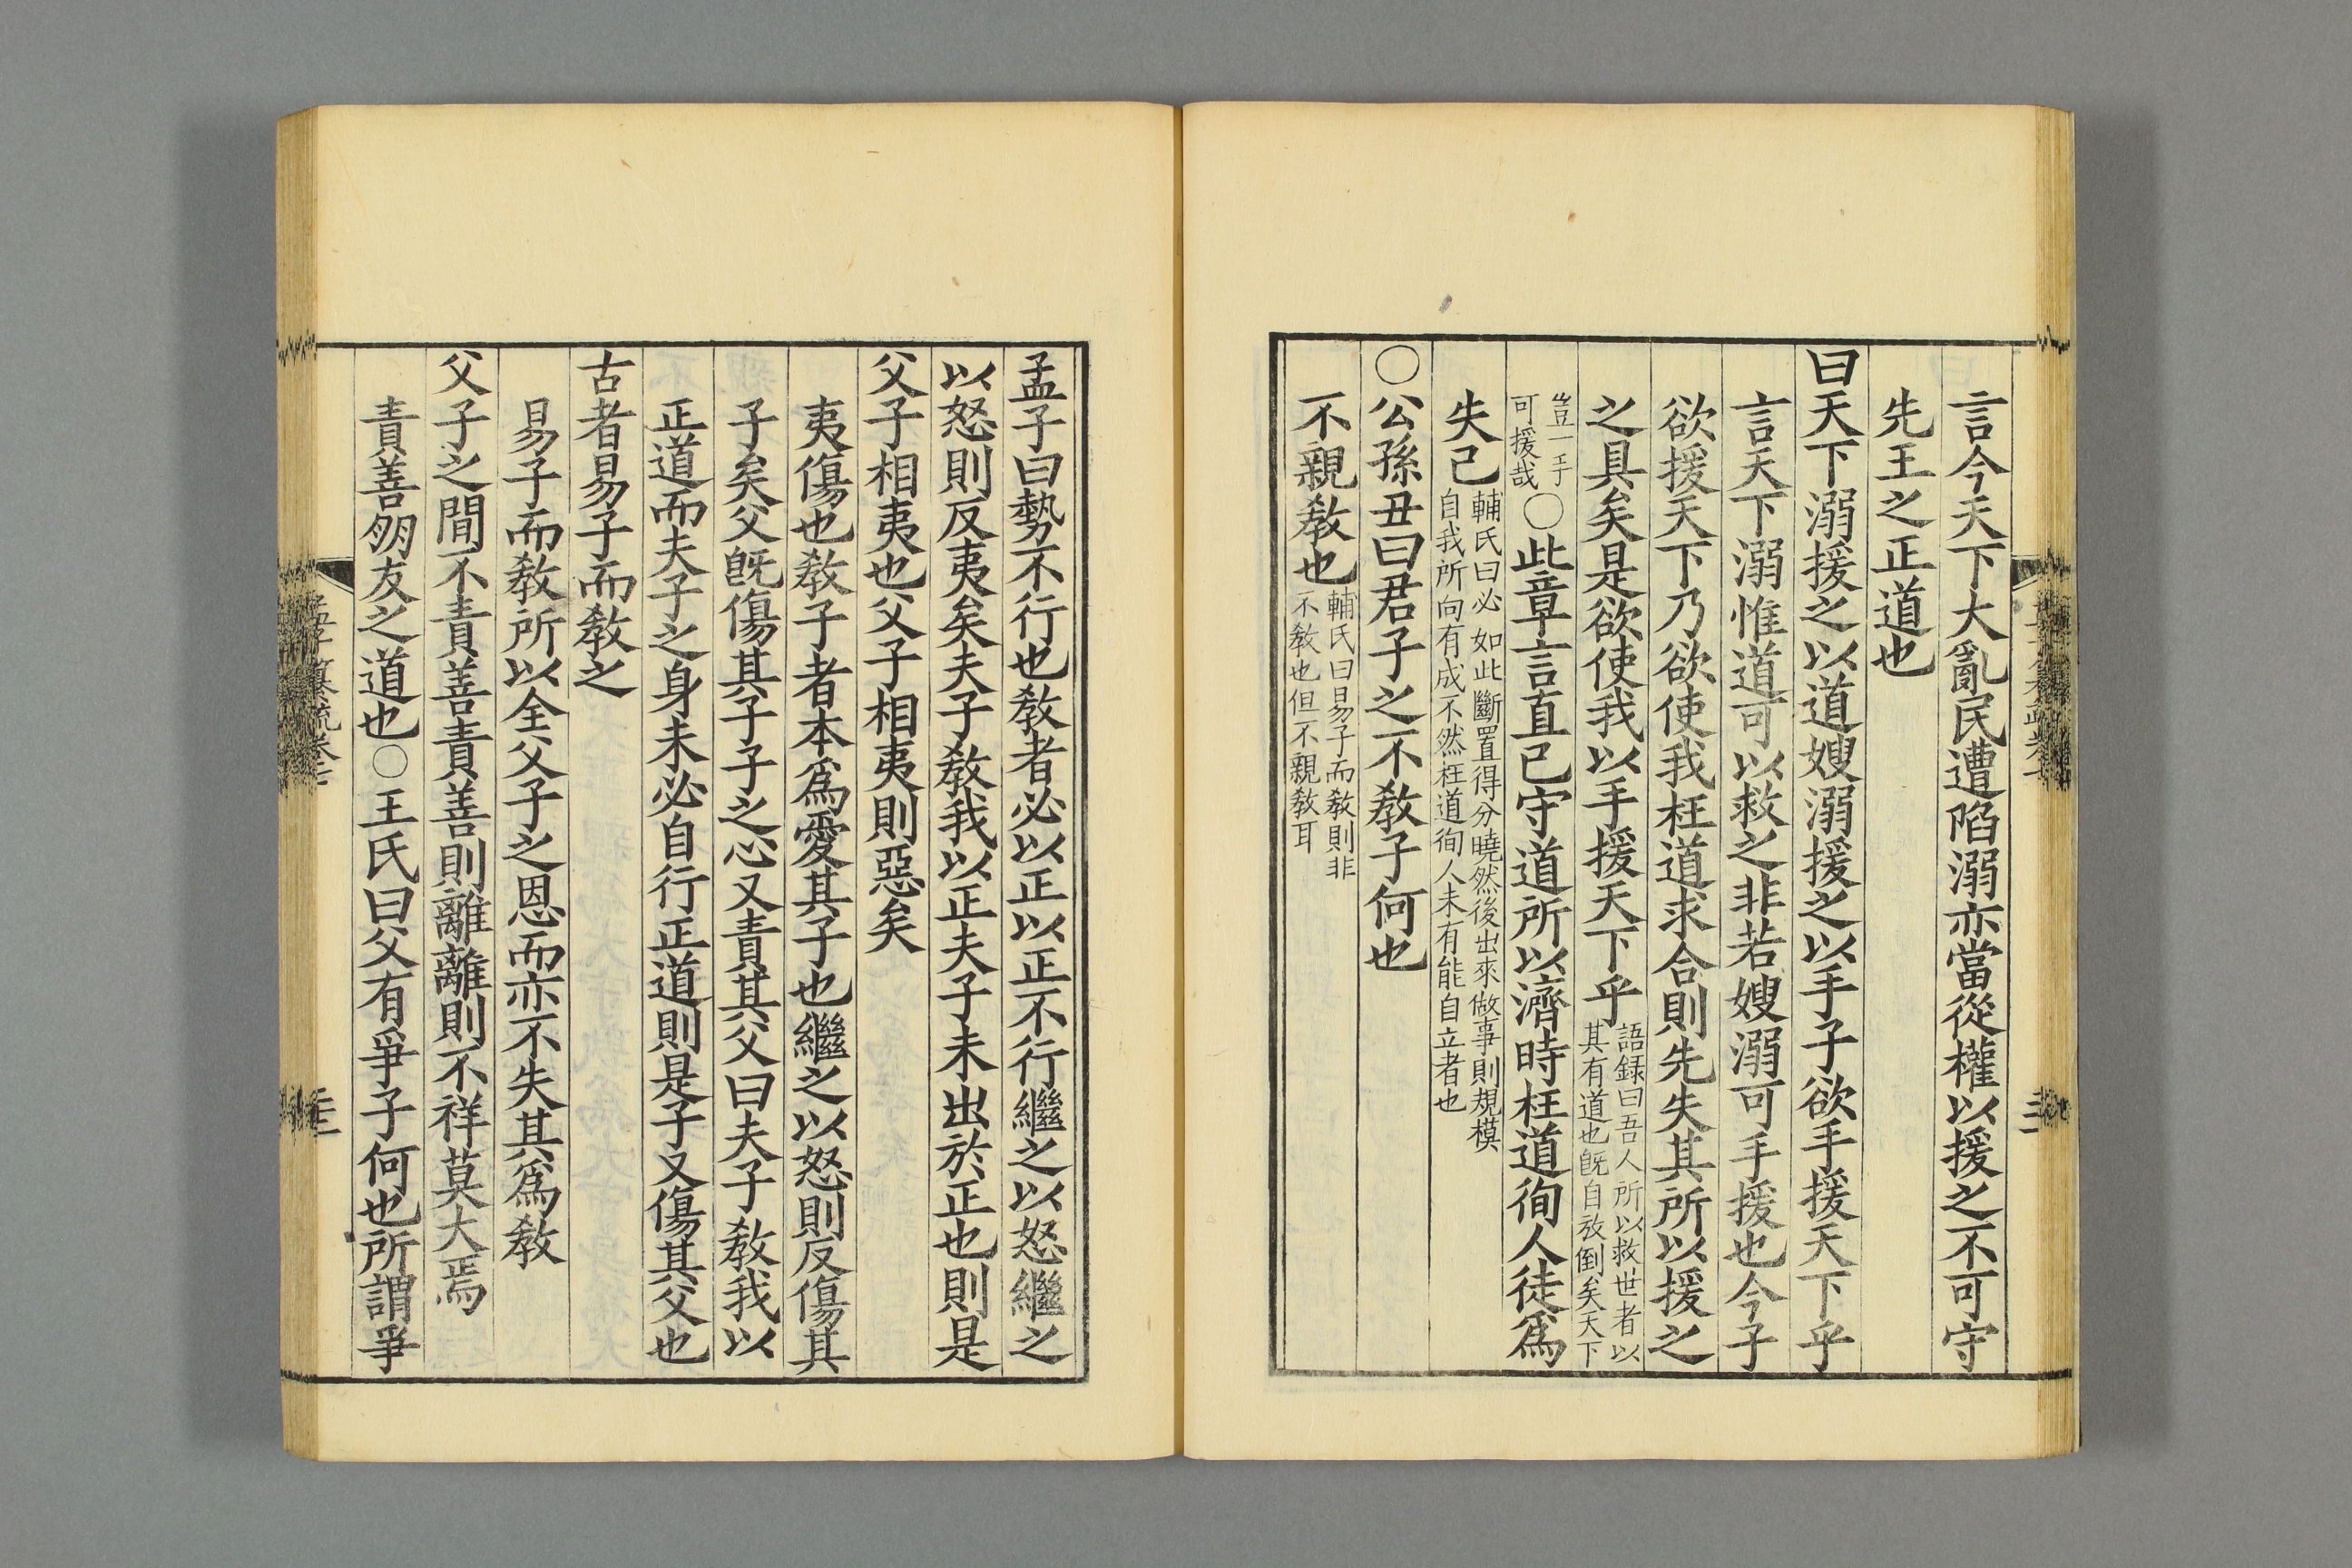 言今天下大亂民遭陷溺亦當從權以援之不可守
先王之正道也
曰天下溺援之以道嫂溺援之以手子欲手援天下乎
言天下溺惟道可以救之非若嫂溺可手援也今子
欲援天下乃欲使我枉道求合則先失其所以援之
之具矣是欲使我以手援天下乎
語録曰吾人所以救世者以
其有道也旣自放倒矣天下
豈一手
可援哉
○此章言直己守道所以濟時枉道徇人徒爲
失己
輔氏曰必如此斷置得分曉然後出來做事則規模
自我所向有成不然枉道徇人未有能自立者也
○公孫丑曰君子之不敎子何也
不親敎也
輔氏曰易子而敎則非
不敎也但不親敎耳
孟子曰勢不行也敎者必以正以正不行繼之以怒繼之
以怒則反夷矣夫子敎我以正夫子未出於正也則是
父子相夷也父子相夷則惡矣
夷傷也敎子者本爲愛其子也繼之以怒則反傷其
子矣父旣傷其子子之心又責其父曰夫子敎我以
正道而夫子之身未必自行正道則是子又傷其父也
古者易子而敎之
易子而敎所以全父子之恩而亦不失其爲敎
父子之間不責善責善則離離則不祥莫大焉
責善朋友之道也○王氏曰父有爭子何也所謂爭
孟子纂疏卷七